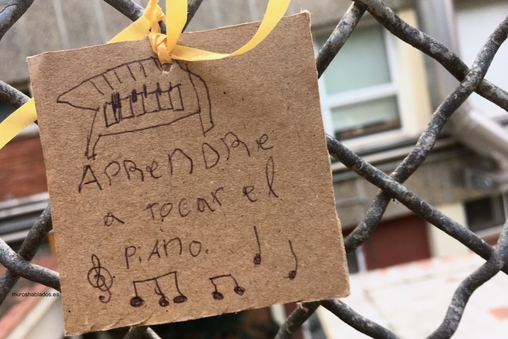 APRENDRE
a TOCAR el
PIANO.
muroshablados.es